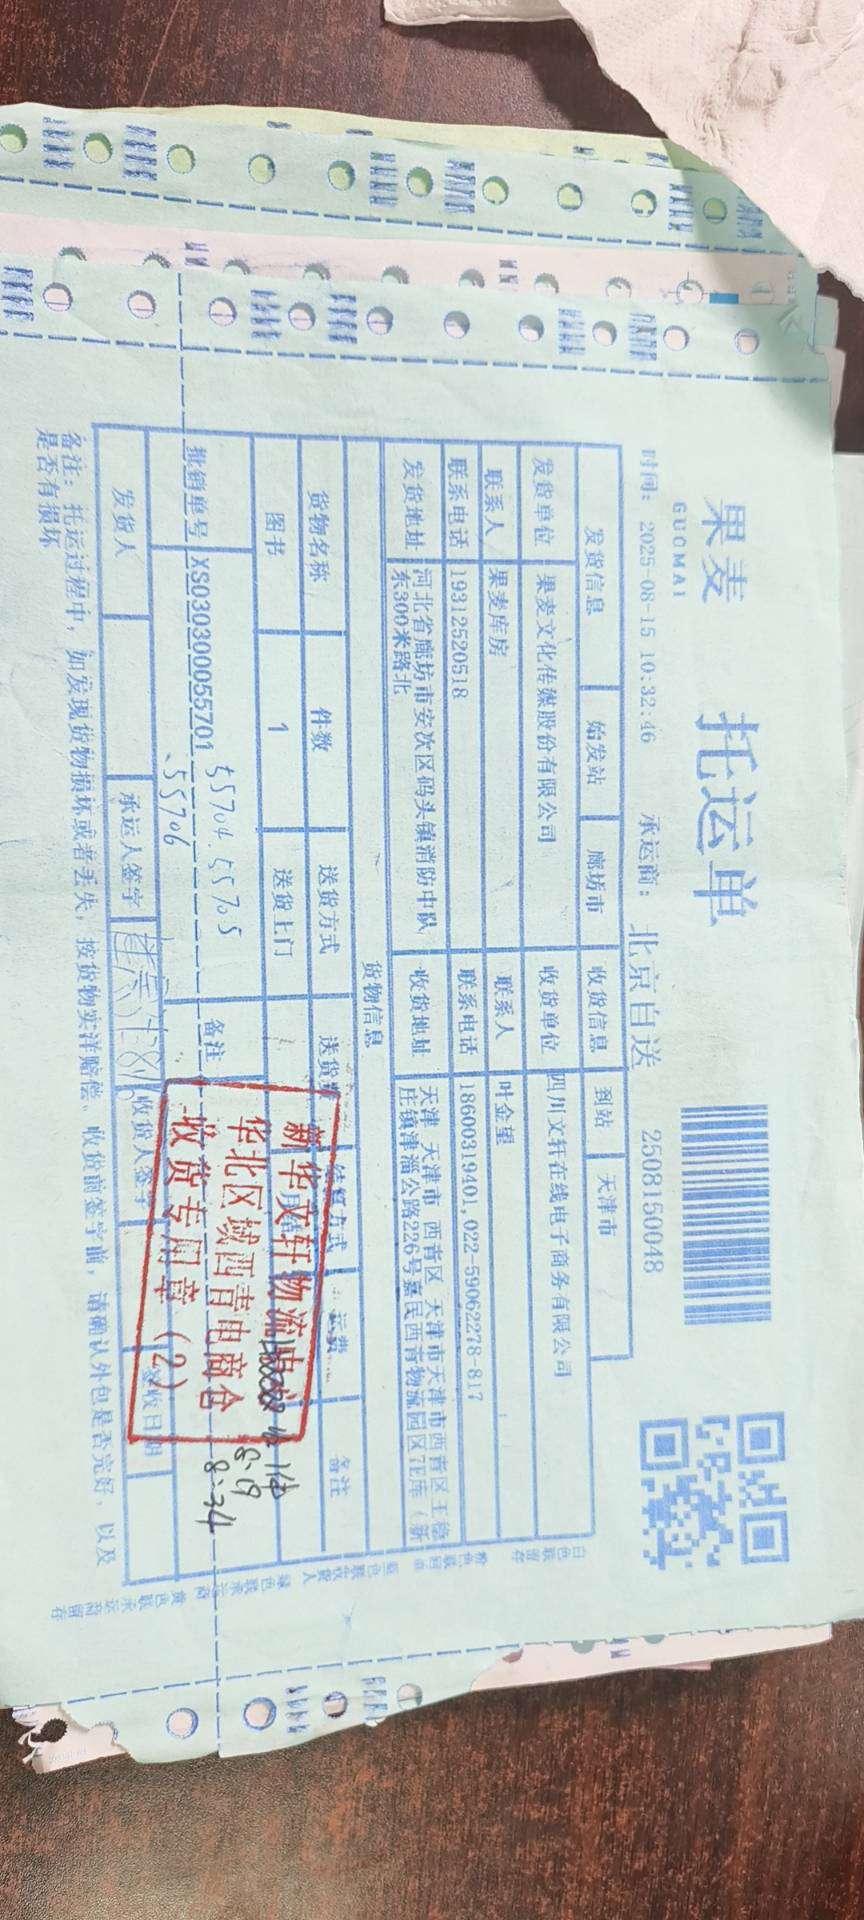 果麦
GUOMAI
托运单
时间: 2025-08-15 10:32:46
承运商: 北京自送
2508150048
发货信息 始发站 廊坊市 收货信息 到站 天津市
发货单位 果麦文化传媒股份有限公司 收货单位 四川文轩在线电子商务有限公司
联系人 果麦库房 联系人 叶金望
联系电话 19312520518 联系电话 18600319401,022-59062278-817
发货地址 河北省廊坊市安次区码头镇消防中队东300米路北 收货地址 天津 天津市 西青区 天津市天津市西青区王稳庄镇津淄公路226号嘉民西青物流园区 库(新
货物信息
货物名称 件数 送货方式 送货 结算方式 运费 备注
图书 1 送货上门 月结
批销单号 XS030300055701 备注
55704.55705
.55706
新华文轩物流
华北区域西青电商仓
收货专用章(2)
收1件
8.19
8:34
发货人 承运人签字 收货人签字 签收日期
备注: 托运过程中, 如发现货物损坏或者丢失, 按货物实洋赔偿、收货前签字前, 请确认外包是否完好, 以及
是否有损坏
白色联留存
粉色联回单
蓝色联收货人
绿色联承运商
黄色联承运商留存